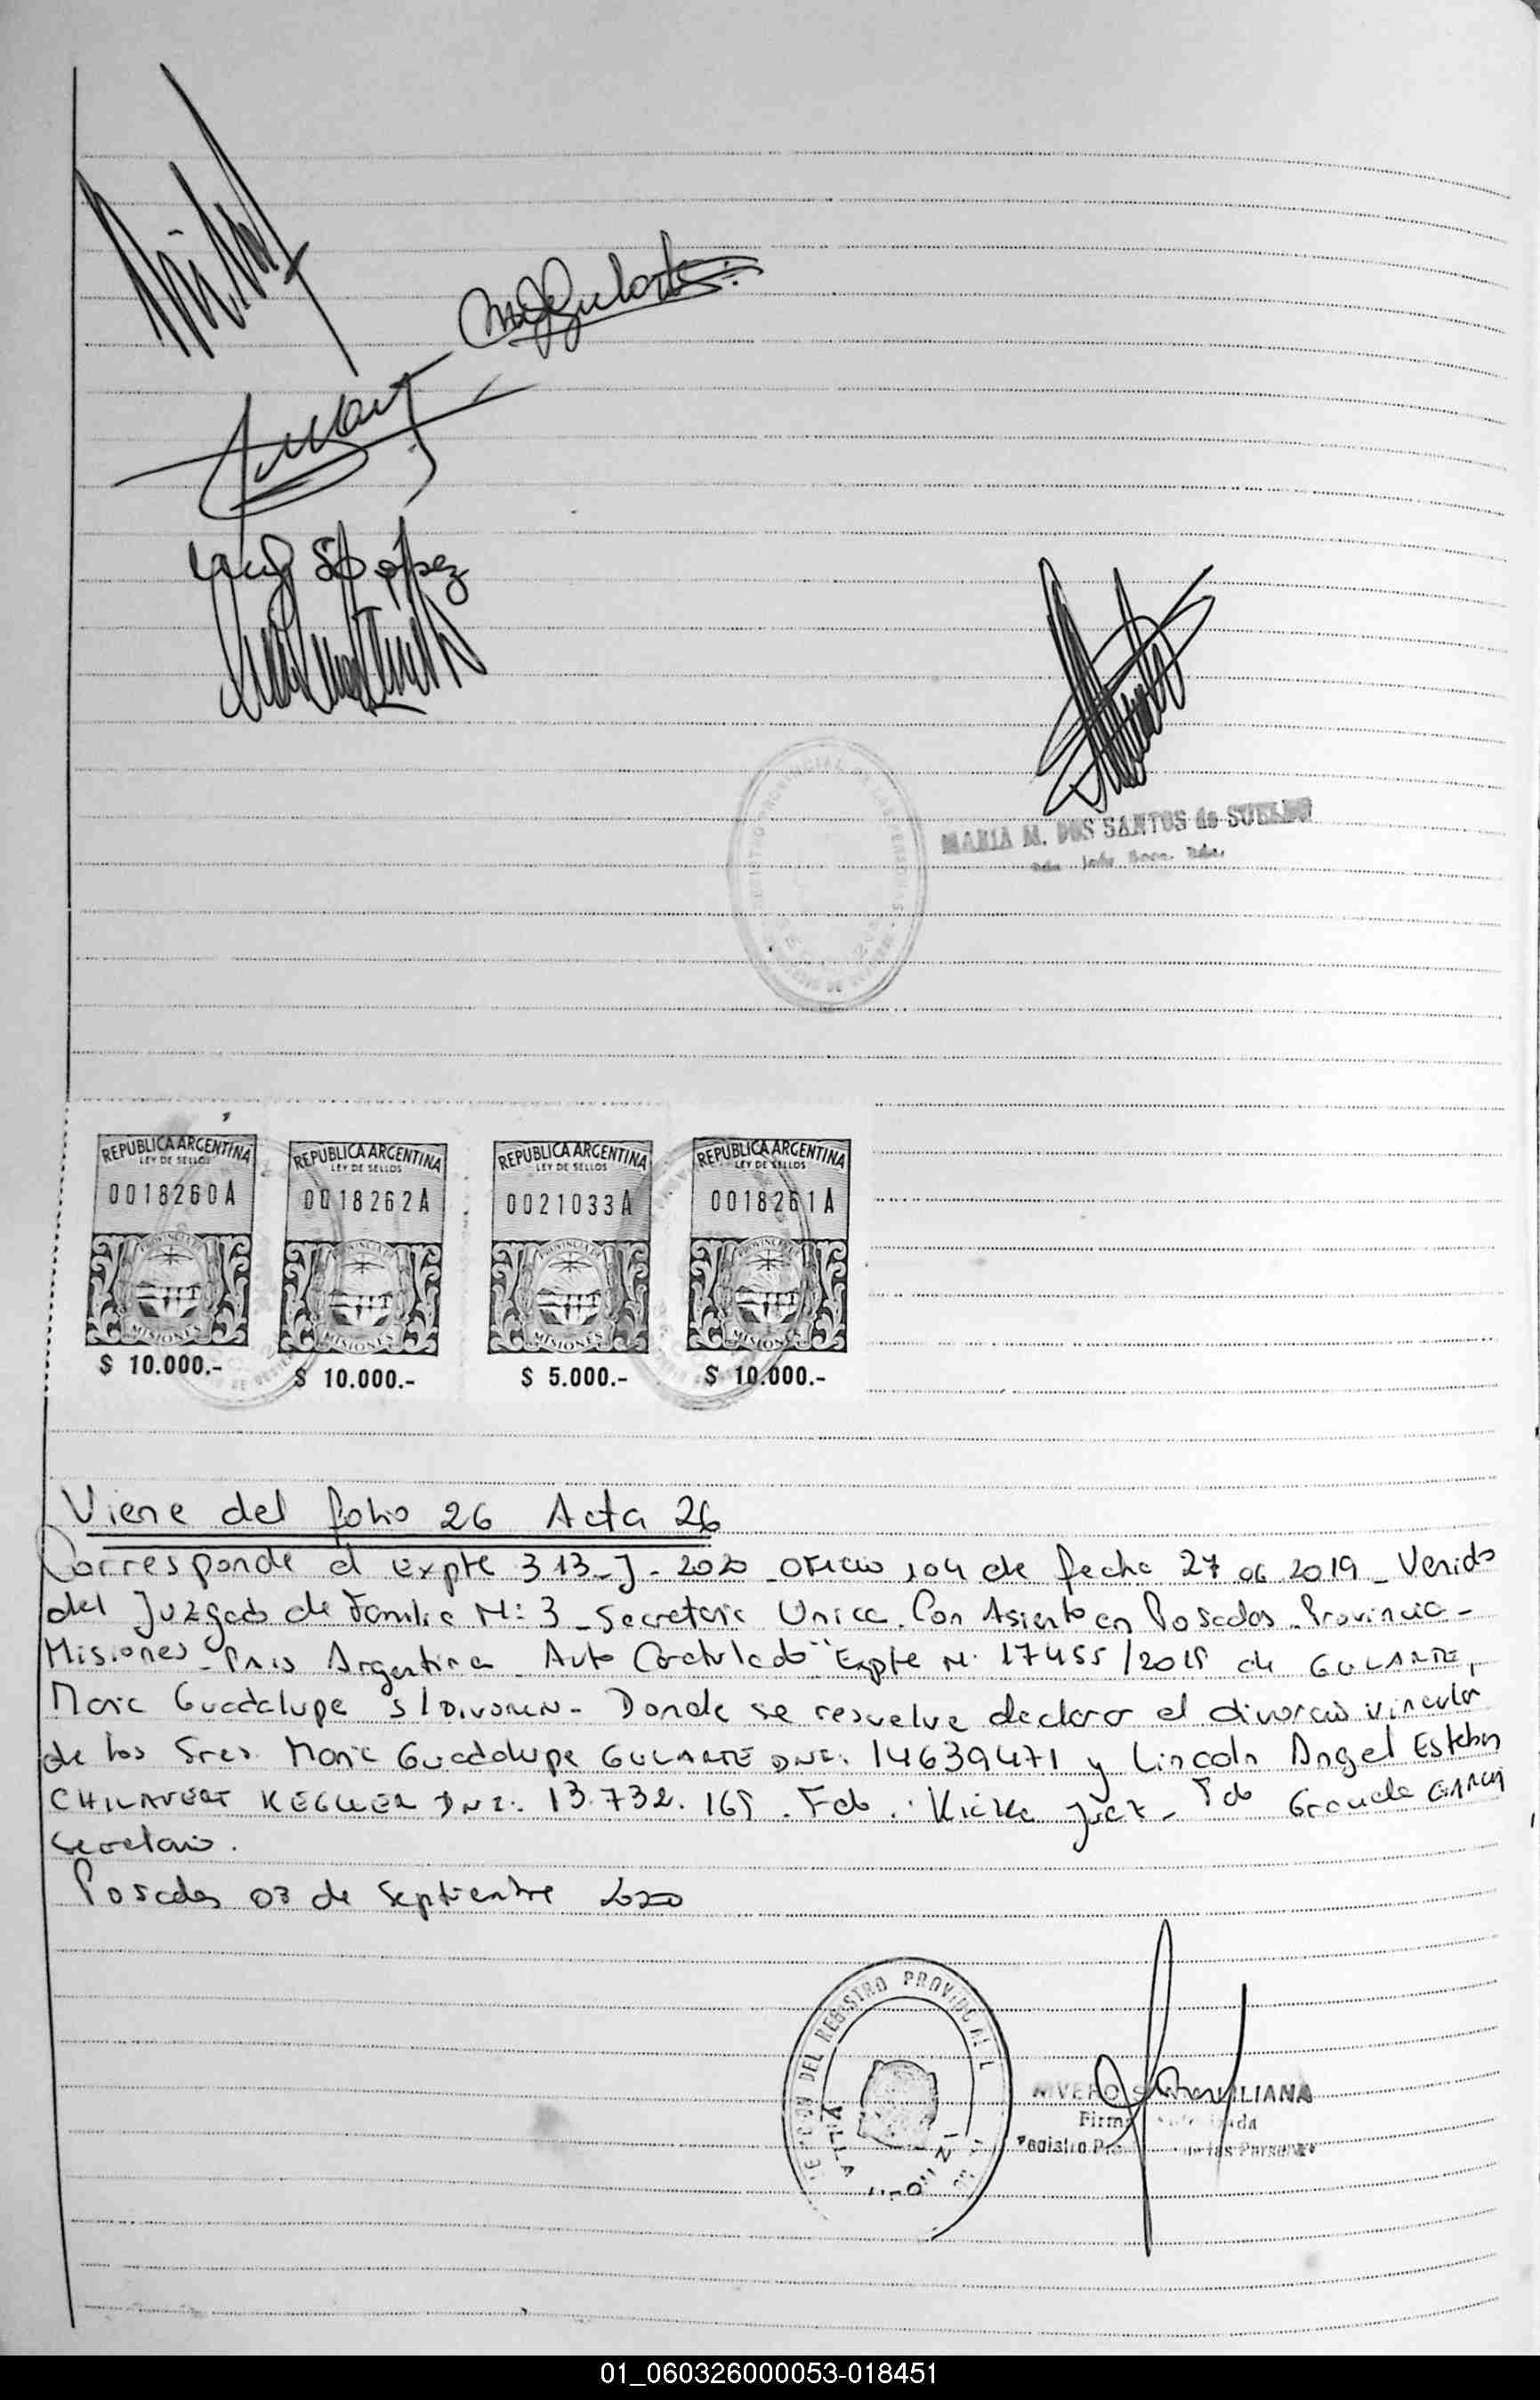 López
MARIA M. DOS SANTOS de SUELDO
REPUBLICA ARGENTINA
LEY DE SELLOS
0018260A
PROVINCIA DE
MISIONES
$ 10.000.-
REPUBLICA ARGENTINA
LEY DE SELLOS
0018262A
PROVINCIA DE
MISIONES
$ 10.000.-
REPUBLICA ARGENTINA
LEY DE SELLOS
0021033A
PROVINCIA DE
MISIONES
$ 5.000.-
REPUBLICA ARGENTINA
LEY DE SELLOS
0018261A
PROVINCIA DE
MISIONES
$ 10.000.-
Viene del folio 26 Acta 26
Corresponde al expte 313-J-2020 - Oficio 104 de fecha 27 06 2019 - Venido
del Juzgado de Familia N: 3 - Secretaria Unica. Con Asiento en Posadas. Provincia -
Misiones - Pais Argentina - Auto Caratulado "Expte N. 17455/201 de GULARTE,
Maria Guadalupe s/Divorcio - Donde se resuelve declarar el divorcio vincular
de los Sres. Maria Guadalupe GULARTE DNI. 14639471 y Lincoln Angel Esteban
CHILAVERT KEGLLER DNI: 13.732.16 . Fdo. : Juez - Fdo Graciela GARCIA
Secretario.
Posadas 03 de Septiembre 2020
DEL REGISTRO PROVINCIAL
LILIANA
Firma
Registro de las Personas
01_060326000053-018451